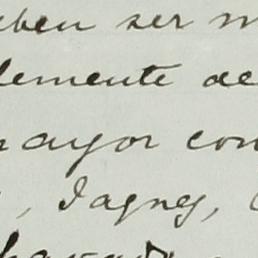 eben ser m
lemente de
mayor con
, Jagney,